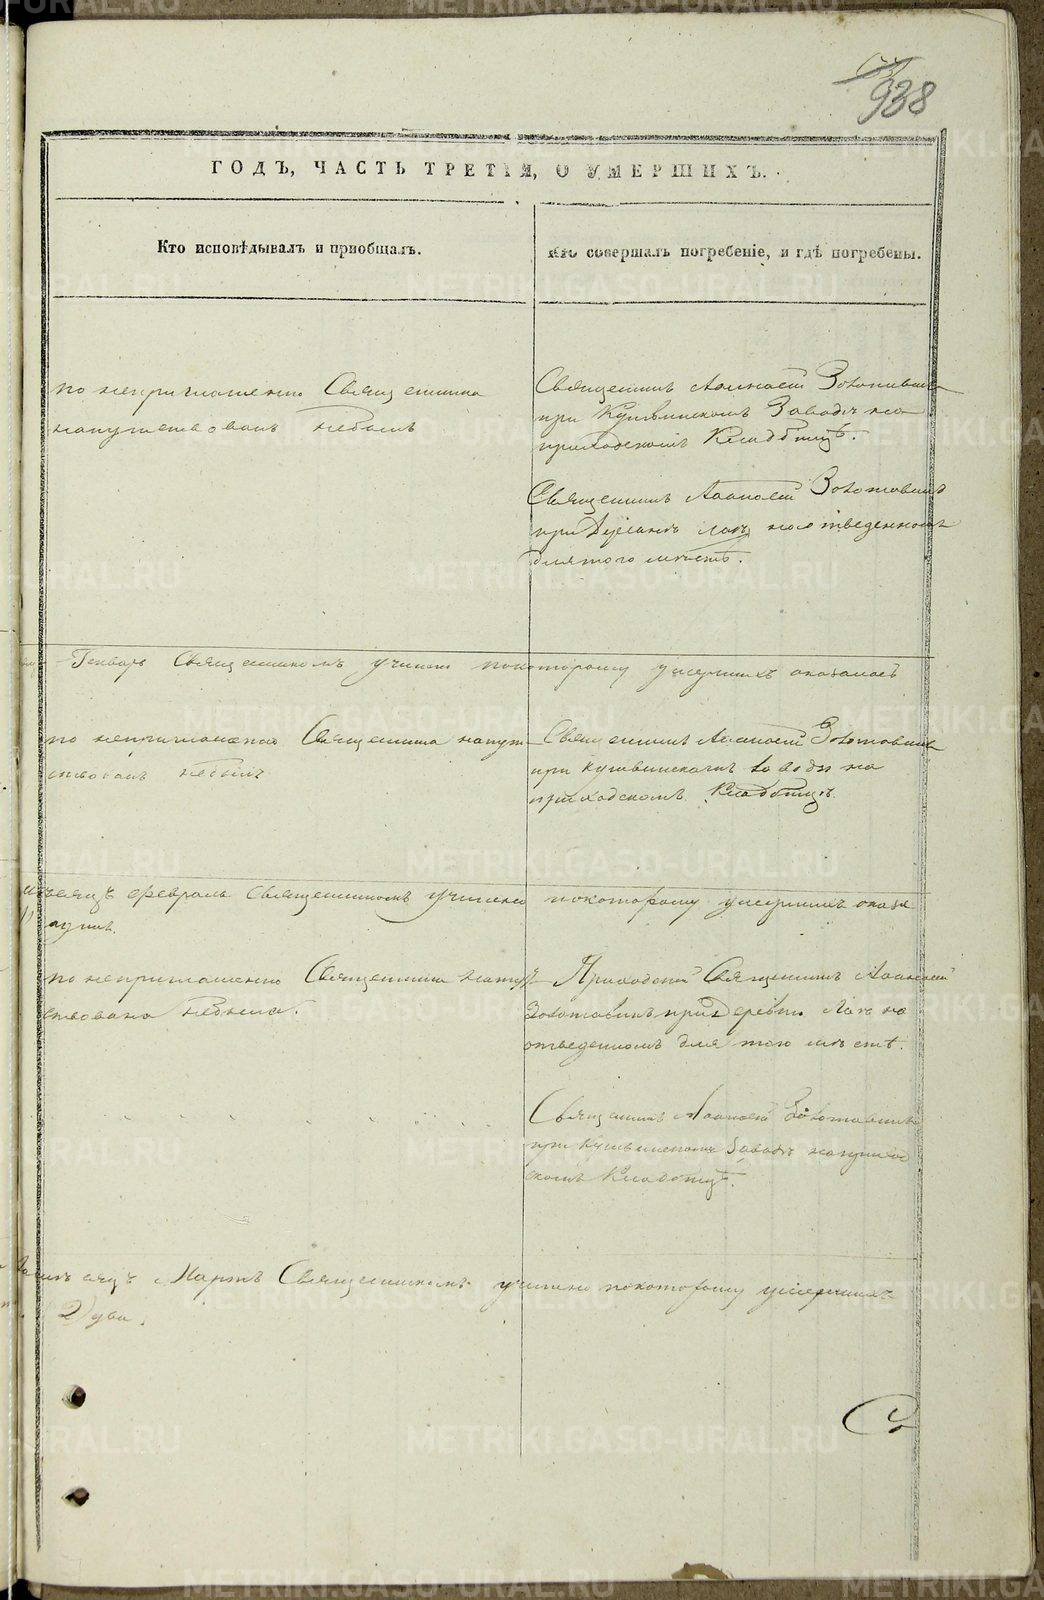 938
ГОДЪ, ЧАСТЬ ТРЕТІЯ, О УМЕРШИХЪ.
Кто исповѣдывалъ и приобщалъ.
Кто совершалъ погребеніе, и гдѣ погребены.
по неприглашению Священника
напутствованъ небылъ
Священникъ Афанасій
при Кушвинскомъ Заводѣ на
приходскомъ Кладбищѣ.
Священникъ Афанасій
при на отведенномъ
для того мѣстѣ.
Генварь Священникомъ учинено покоторому умершихъ оказалось
по неприглашению Священника напут
ствованъ небылъ
Священникъ Афанасій
при Кушвинскомъ заводѣ на
приходскомъ Кладбищѣ.
мѣсяцъ февраль Священникомъ учинено покоторому умершихъ оказа
одинъ.
по неприглашению Священника напут
ствована небыла.
Приходскій Священникъ Афанасій
при Деревнѣ на
отведенномъ для того мѣстѣ.
Священникъ Афанасій
при Кушвинскомъ Заводѣ наприход
скомъ Кладбищѣ.
мѣсяцъ Мартъ Священникомъ учинено покоторому умершихъ
(2) два.
METRIKI.GASO-URAL.RU